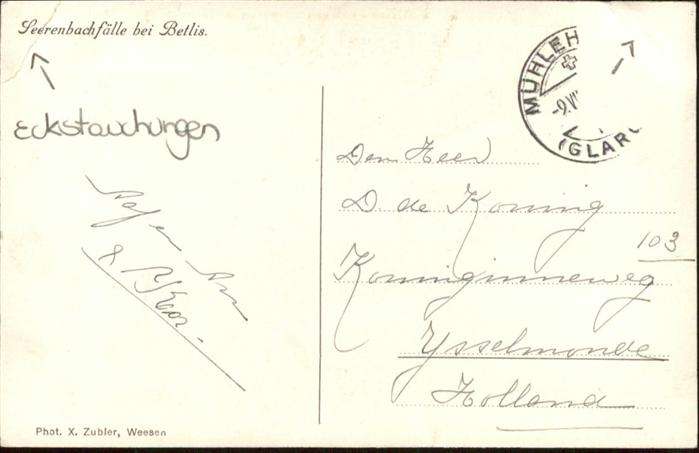 Seerenbachfälle bei Betlis.
Eckstauchungen
MÜHLEH
-9.VI
(GLAR
Den Heer
D. de Koning
103
Koninginneweg
Ysselmonde
Holland
Phot. X. Zubler, Weesen